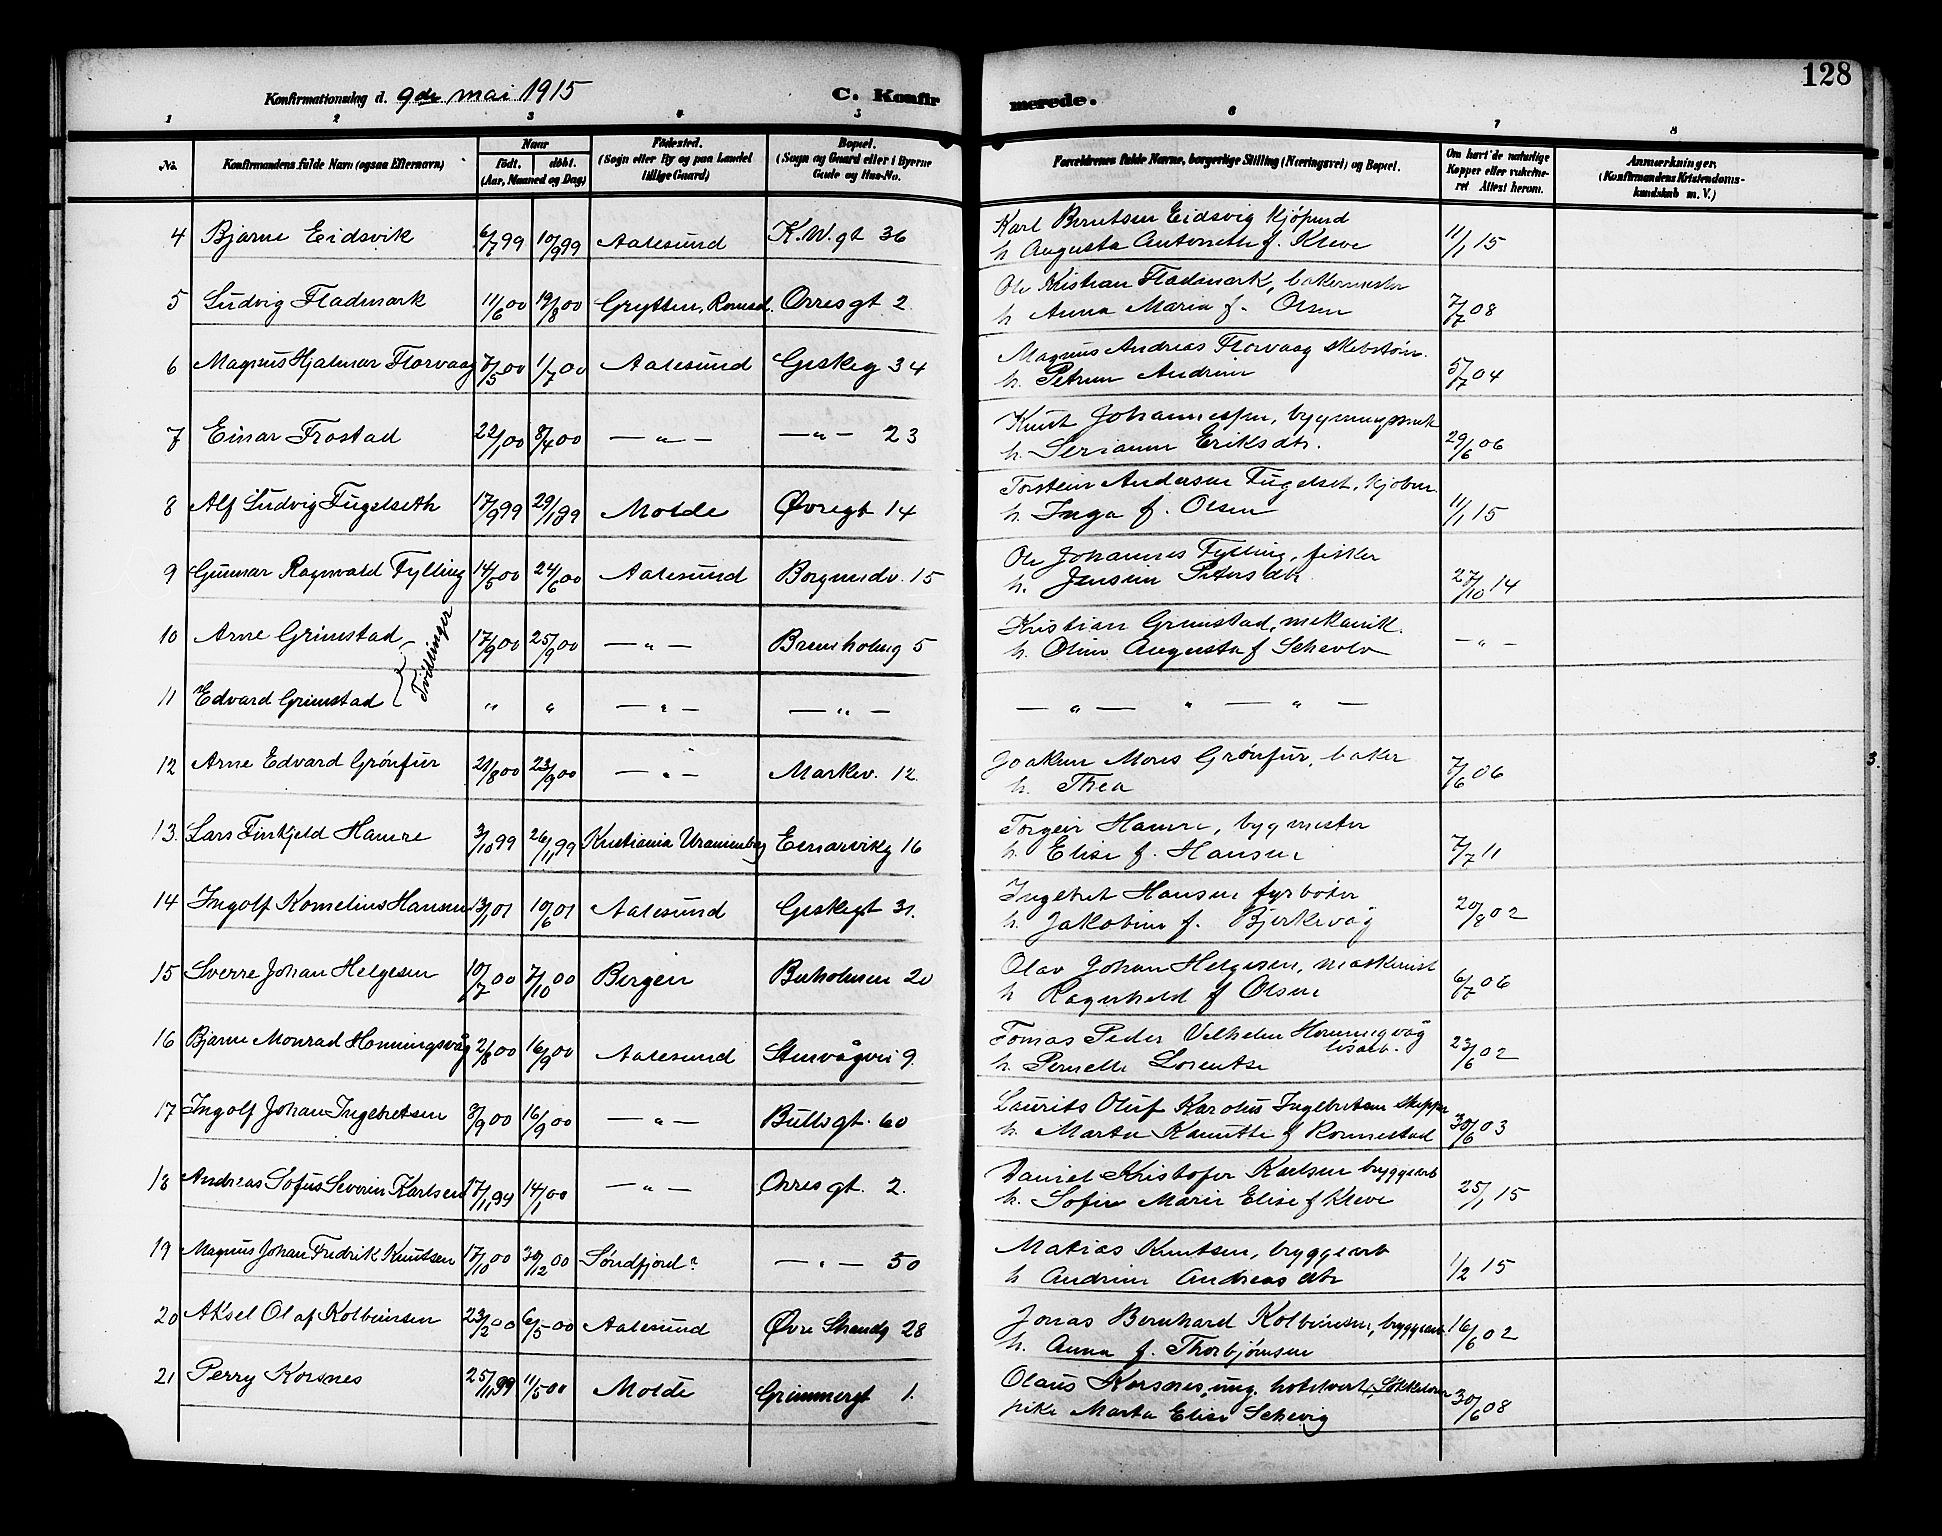 128
Konfirmationsdag d. 9de mai 1915
C. Konfirmerede.
1 2 3 4 5 6 7 8
No. Konfirmandens fulde Navn (ogsaa Efternavn) Naar födt. döbt. (Aar, Maaned og Dag) Födested. (Sogn eller By og paa Landet tillige Gaard) Bopæl. (Sogn og Gaard eller i Byerne Gade og Hus-No. Forældrenes fulde Navne, borgerlige Stilling (Næringsvei) og Bopæl. Om havt de naturlige Kopper eller vakcineret Attest herom. Anmærkninger. (Konfirmandens Kristendomskundskab m. V.)
4 Bjarne Eidsvik 6/7 99 10/9 99 Aalesund K.W.gt 36 Karl Berntsen Eidsvig kjöpmd 11/1 15
h. Augusta Antonette f. Kleve
5 Ludvig Fladmark 11/6 00 19/8 00 Grytten, Romsd. Orresgt 2. Ole Kristian Fladmark, bakermester 7/7 08
h. Anna Maria f. Olsen
6 Magnus Hjalmar Florvaag 7/5 00 1/7 00 Aalesund Geskeg 34 Magnus Andreas Florvaag 5/7 04
h. Petrine Andrine
7 Einar Frostad 22/1 00 8/4 00 — " — — " — 23 Knut Johannessen, bygningssnk 29/6 06
h. Serianne Eriksdtr.
8 Alf Ludvig Fugelseth 17/9 99 29/1 99 Molde Øvregt 14 Torstein Andersen Fugelset, kjöbm. 11/1 15
h. Inga f. Olsen
9 Gunnar Ragnvald Fylling 14/5 00 24/6 00 Aalesund Borgundv. 15 Ole Johannes Fylling, fisker 27/10 14
h. Jensine Petersdtr.
10 Arne Grimstad 17/9 00 25/9 00 — " — Bremsholmg 5 Kristian Grimstad, mekanik. — " —
Tvillinger
h. Oline Augusta f
11 Edvard Grimstad " " — " — — " — — " — " — " —
12 Arne Edvard Grönfur 21/8 00 23/9 00 — " — Markev. 12. Joakim Mons Grönfur, baker 7/6 06
h. Thea
13. Lars Finkjeld Hamre 3/10 99 26/11 99 Kristiania Uranienborg Einarvikg 16 Torgeir Hamre, bygmester 7/7 11
h. Elise f. Hansen
14 Ingolf Kornelius Hansen 13/1 01 10/6 01 Aalesund Geskegt 31. Ingebret Hansen fyrböter 20/8 02
h. Jakobine f. Bjerkevåg
15 Sverre Johan Helgesen 10/7 00 7/10 00 Bergen Buholmen 20 Olav Johan Helgesen, maskinist 6/7 06
h Ragnhild f Olsen
16 Bjarne Monrad Honningsvåg 2/8 00 16/9 00 Aalesund Stenvågvei 9. Tomas Peder Vilhelm Honningvåg 23/6 02
h. Pernelle Lorentse
17 Ingolf Johan Ingebretsen 3/9 00 16/9 00 — " — Bullsgt. 60 Laurits Oluf Karolus Ingebretsen skipper 30/6 03
h. Marta Kanutte f Ronnestad
18 Andreas Sofus Severin Karlsen 17/11 99 14/1 00 — " — Orresgt. 2. Daniel Kristofer Karlsen bryggearb 25/1 15
h. Sofie Marie Elise f Kleve
19 Magnus Johan Fredrik Knutsen 17/10 00 30/12 00 Søndfjord? — " — 50 Matias Knutsen, bryggearb 1/2 15
h Andrine Andreasdtr
20 Aksel Olaf Kolbeinsen 23/2 00 6/5 00 Aalesund Øvre Strandg 28 Jonas Bernhard Kolbeinsen, bryggearb. 16/6 02
h. Anna f. Thorbjörnsen
21 Perry Korsnes 25/11 99 11/5 00 Molde Grimmergt 1. Olaus Korsnes, ung. hotelvert, 30/6 08
pike Marta Elise Schevig
3.